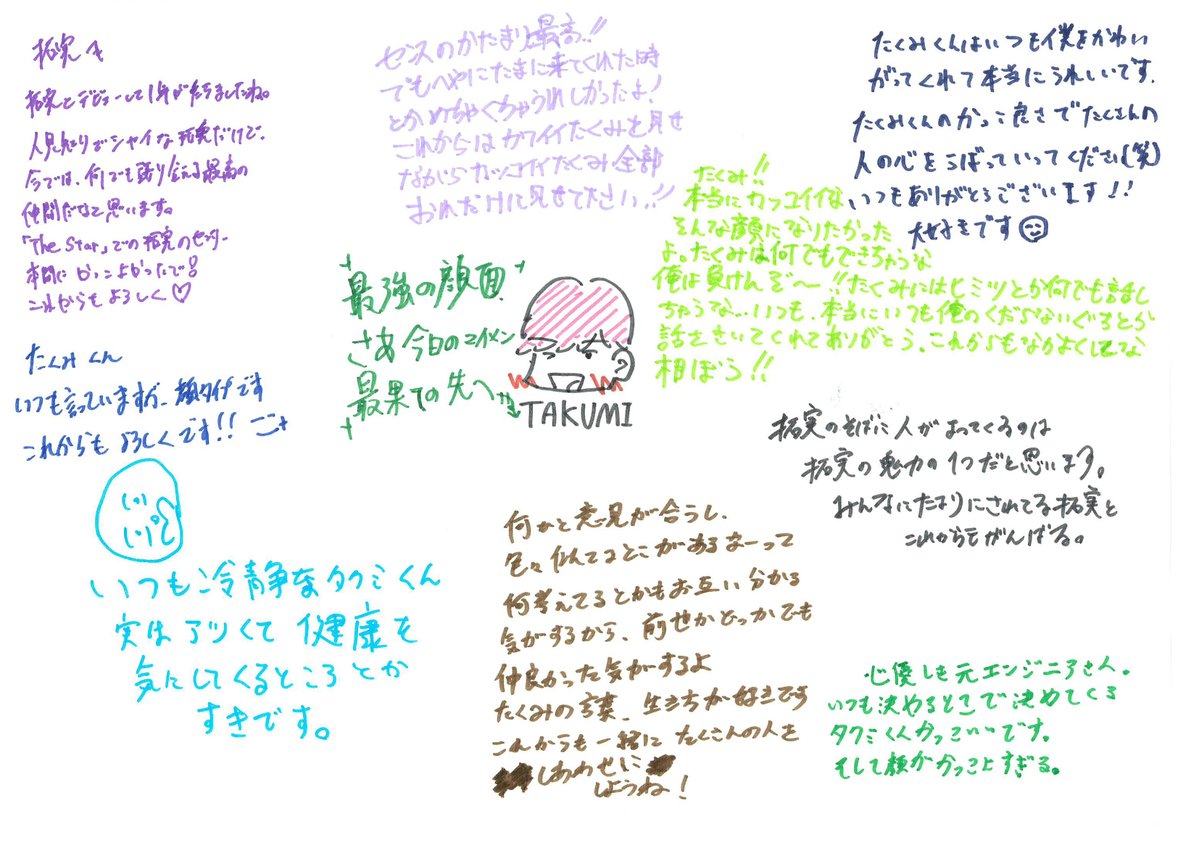 拓実へ
拓実とデビューして1年が立ちましたね。
人見知りでシャイな拓実だけど、
今では、何でも語り合える最高の
仲間だなと思います。
「The Star」での拓実のセンター
本間に かっこよかったで!
これからもよろしく♡
センスのかたまり最高!!
でもへやにたまに来てくれた時
とかめちゃくちゃうれしかったよ!
これからはカワイイたくみを見せ
ながらカッコイイたくみ全部
おれだけに見せて下さい!!
たくみくんはいつも僕をかわい
がってくれて本当にうれしいです.
たくみくんのかっこ良さでたくさんの
人の心をうばっていってください(笑)
いつもありがとうございます!!
大好きです
たくみ!!
本当にカッコイイな
そんな顔になりたかった
よ。たくみは何でもできちゃうな
俺は負けんぞ〜!!たくみにはヒミツとか何でも話し
ちゃうな…いつも、本当にいつも俺のくだらないぐちとか
話をきいてくれてありがとう、これからもなかよくしてな
相ぼう!!
最強の顔面
さあ 今日のイケメン
最果ての先へ
TAKUMI
たくみくん
いつも言っていますが、顔タイプです
これからも よろしくです!!
拓実のそばに人がよってくるのは
拓実の魅力の1つだと思います。
みんなにたよりにされてる拓実と
これからもがんばる。
いつも冷静なタクミくん
実はアツくて 健康を
気にしてくるところとか
すきです。
何かと意見が合うし、
色々似てるとこがあるなーって
何考えてるとかもお互い分かる
気がするから、前世かどっかでも
仲良かった気がするよ
たくみの言葉、生き方が好きです
これからも一緒に たくさんの人を
しあわせに
しようね!
心優しき元エンジニアさん。
いつも決めるとこで決めてくる
タクミくんかっこいいです。
そして顔がかっこよすぎる。